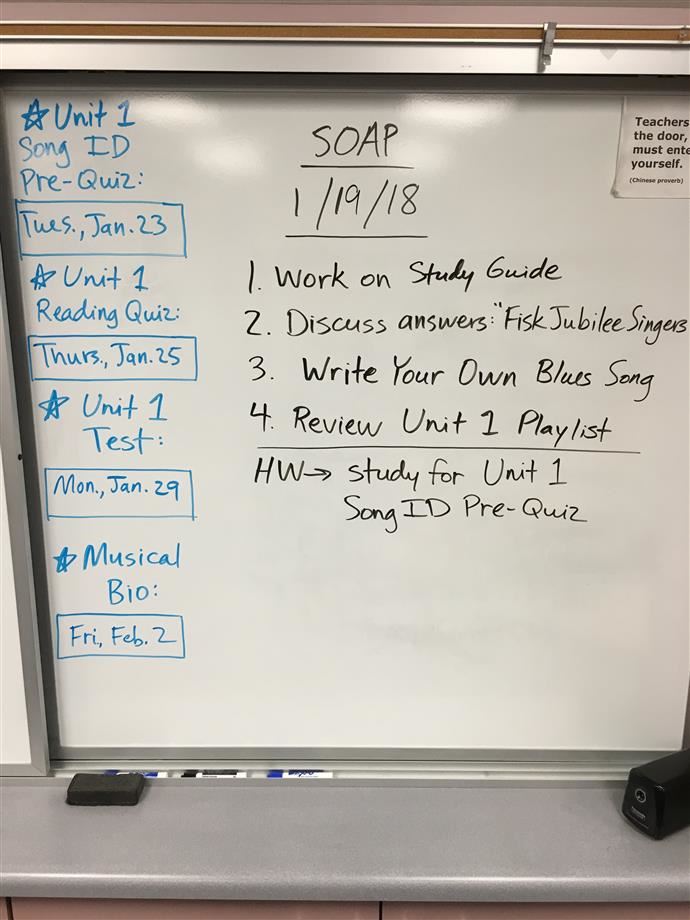 ☆ Unit 1
Song ID
Pre-Quiz:
Tues., Jan. 23
☆ Unit 1
Reading Quiz:
Thurs., Jan. 25
☆ Unit 1
Test:
Mon., Jan. 29
☆ Musical
Bio:
Fri, Feb. 2
SOAP
1/19/18
1. Work on Study Guide
2. Discuss answers: "Fisk Jubilee Singers
3. Write Your Own Blues Song
4. Review Unit 1 Playlist
HW→ study for Unit 1
Song ID Pre-Quiz
Teachers
the door,
must ente
yourself.
(Chinese proverb)